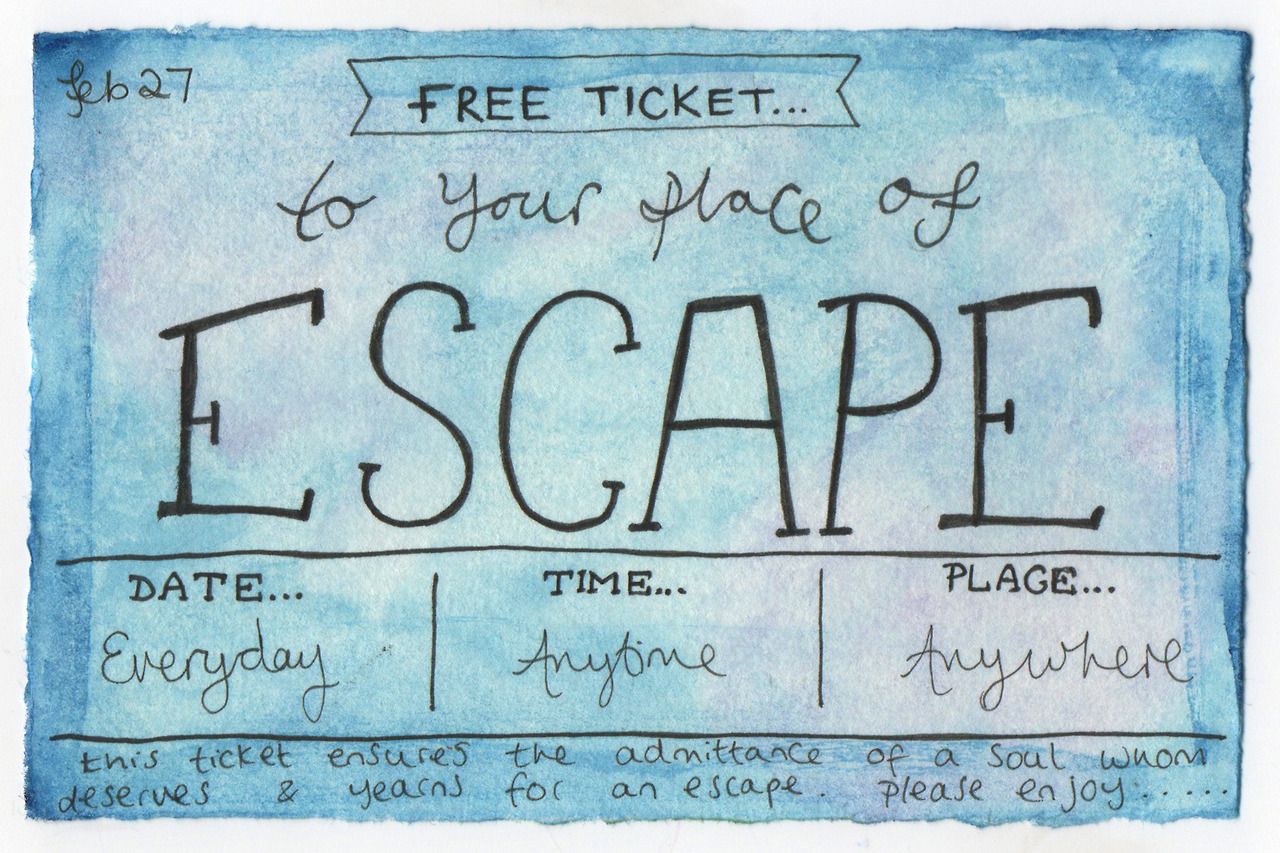 feb 27
FREE TICKET...
to your place of
ESCAPE
DATE... TIME... PLACE...
Everyday Anytime Anywhere
this ticket ensures the admittance of a soul whom
deserves & yearns for an escape. please enjoy:.....